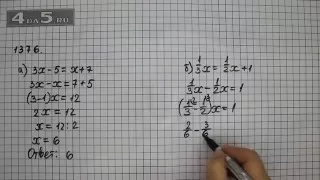 4DA5.RU
1376.
а) 3x-5=x+7
3x-x=7+5
(3-1)x=12
2x=12
x=12:2
x=6
Ответ: 6
б) 1/3x=1/2x+1
1/3x-1/2x=1
(1/3-1/2)x=1
2/6-3/6